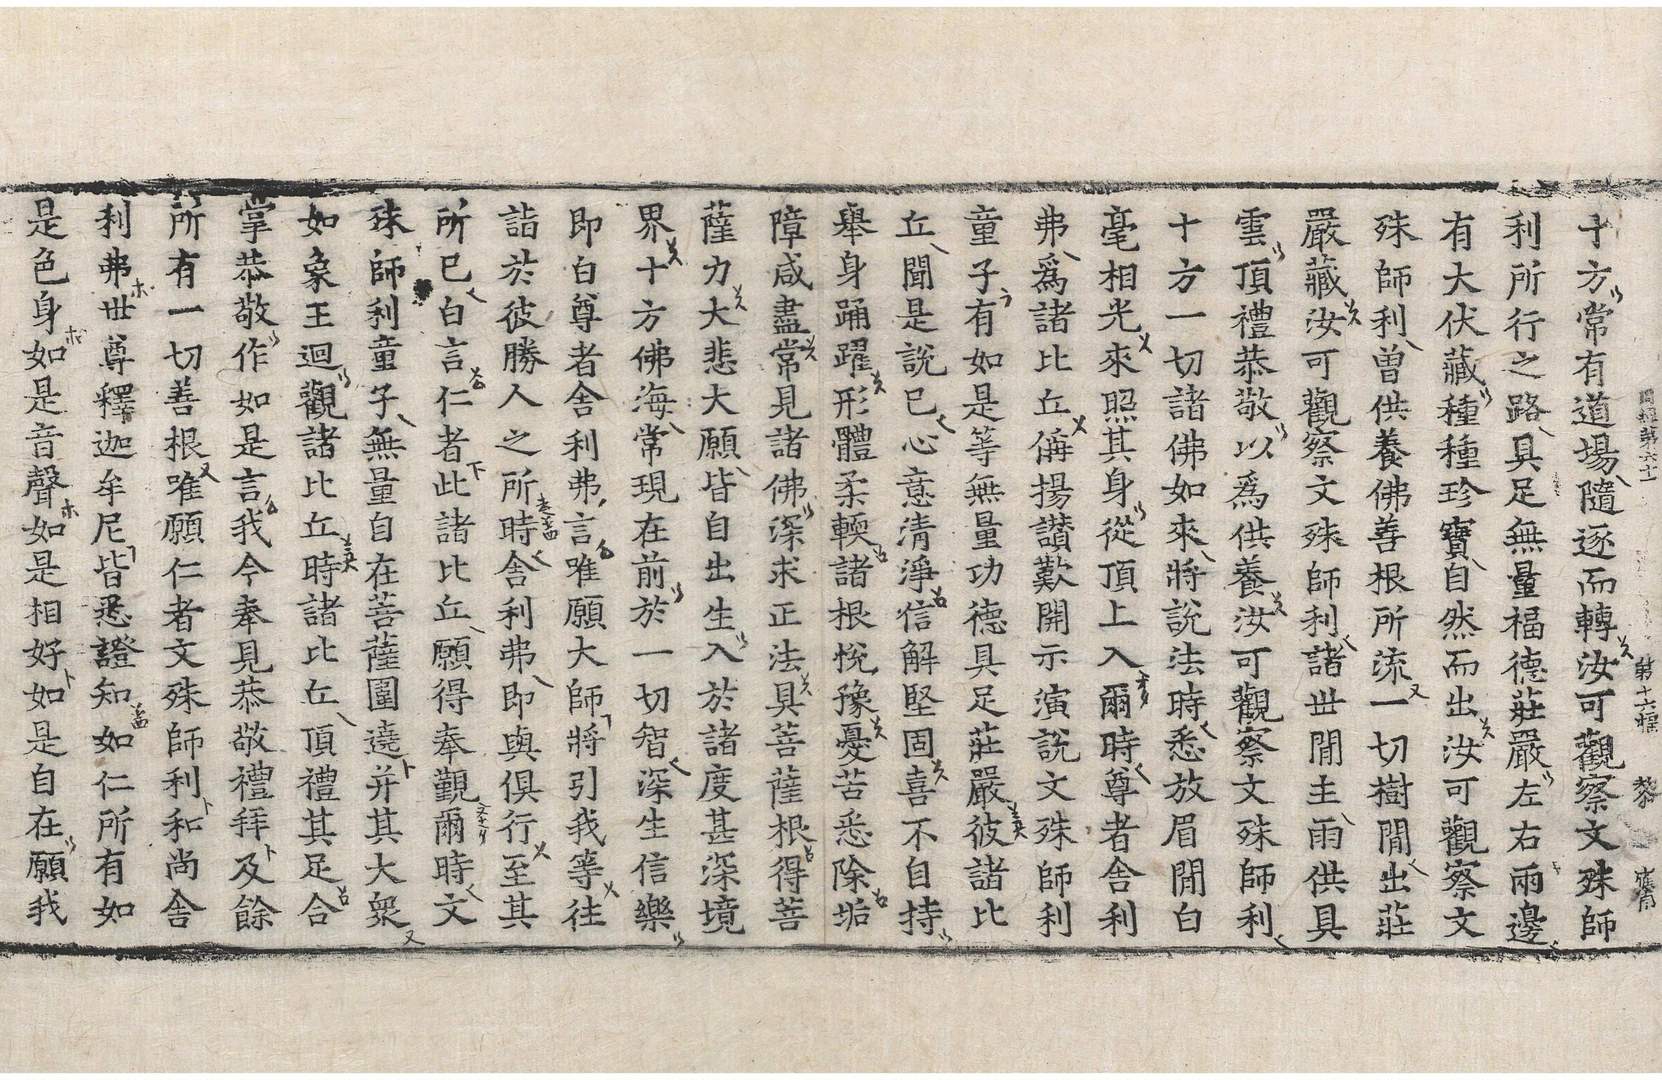 十方常有道場隨逐而轉汝可觀察文殊師
利所行之路具足無量福德莊嚴左右兩邊
有大伏藏種種珍寶自然而出汝可觀察文
殊師利曾供養佛善根所流一切樹間出莊
嚴藏汝可觀察文殊師利諸世間主雨供具
雲頂禮恭敬以爲供養汝可觀察文殊師利
十方一切諸佛如來將說法時悉放眉間白
毫相光來照其身從頂上入爾時尊者舍利
弗爲諸比丘稱揚讃歎開示演說文殊師利
童子有如是等無量功德具足莊嚴彼諸比
丘聞是說已心意清淨信解堅固喜不自持
舉身踊躍形體柔輭諸根悅豫憂苦悉除垢
障咸盡常見諸佛深求正法具菩薩根得菩
薩力大悲大願皆自出生入於諸度甚深境
界十方佛海常現在前於一切智深生信樂
即白尊者舍利弗言唯願大師將引我等往
詣於彼勝人之所時舍利弗即與俱行至其
所已白言仁者此諸比丘願得奉覲爾時文
殊師利童子無量自在菩薩圍遶并其大衆
如象王迴觀諸比丘時諸比丘頂禮其足合
掌恭敬作如是言我今奉見恭敬禮拜及餘
所有一切善根唯願仁者文殊師利和尚舍
利弗世尊釋迦牟尼皆悉證知如仁所有如
是色身如是音聲如是相好如是自在願我